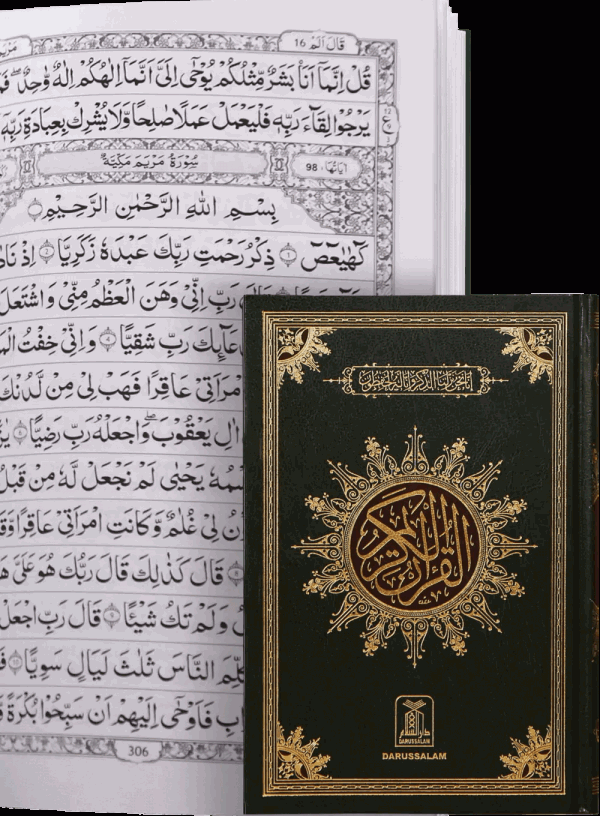 قَالَ اَلَمْ 16
قُلْ اِنَّمَآ اَنَا بَشَرٌ مِّثْلُكُمْ يُوْحٰٓى اِلَىَّ اَنَّمَآ اِلٰهُكُمْ اِلٰهٌ وَّاحِدٌ ۚ
يَرْجُوْا لِقَآءَ رَبِّهٖ فَلْيَعْمَلْ عَمَلًا صَالِحًا وَّلَا يُشْرِكْ بِعِبَادَةِ رَبِّهٖٓ
اٰيَاتُهَا 98 سُوْرَةُ مَرْيَمَ مَكِّيَّةٌ
بِسْمِ اللّٰهِ الرَّحْمٰنِ الرَّحِيْمِ ۝
كٓهٰيٰعٓصٓ ۝١ ذِكْرُ رَحْمَتِ رَبِّكَ عَبْدَهٗ زَكَرِيَّا ۝٢ اِذْ
رَبِّ اِنِّىْ وَهَنَ الْعَظْمُ مِنِّىْ وَاشْتَعَلَ
رَبِّ شَقِيًّا ۝٤ وَاِنِّىْ خِفْتُ
امْرَاَتِىْ عَاقِرًا فَهَبْ لِىْ مِنْ لَّدُنْكَ
اٰلِ يَعْقُوْبَ ۖ وَاجْعَلْهُ رَبِّ رَضِيًّا ۝٦
يَحْيٰى لَمْ نَجْعَلْ لَّهٗ مِنْ قَبْلُ
لِىْ غُلٰمٌ وَّكَانَتِ امْرَاَتِىْ عَاقِرًا
قَالَ كَذٰلِكَ قَالَ رَبُّكَ هُوَ عَلَىَّ
وَلَمْ تَكُ شَيْئًا ۝٩ قَالَ رَبِّ اجْعَلْ
النَّاسَ ثَلٰثَ لَيَالٍ سَوِيًّا ۝١٠
فَاَوْحٰٓى اِلَيْهِمْ اَنْ سَبِّحُوْا بُكْرَةً
306
إنا نحن نزلنا الذكر وإنا له لحافظون
القرآن الكريم
دار السلام
DARUSSALAM
DARUSSALAM